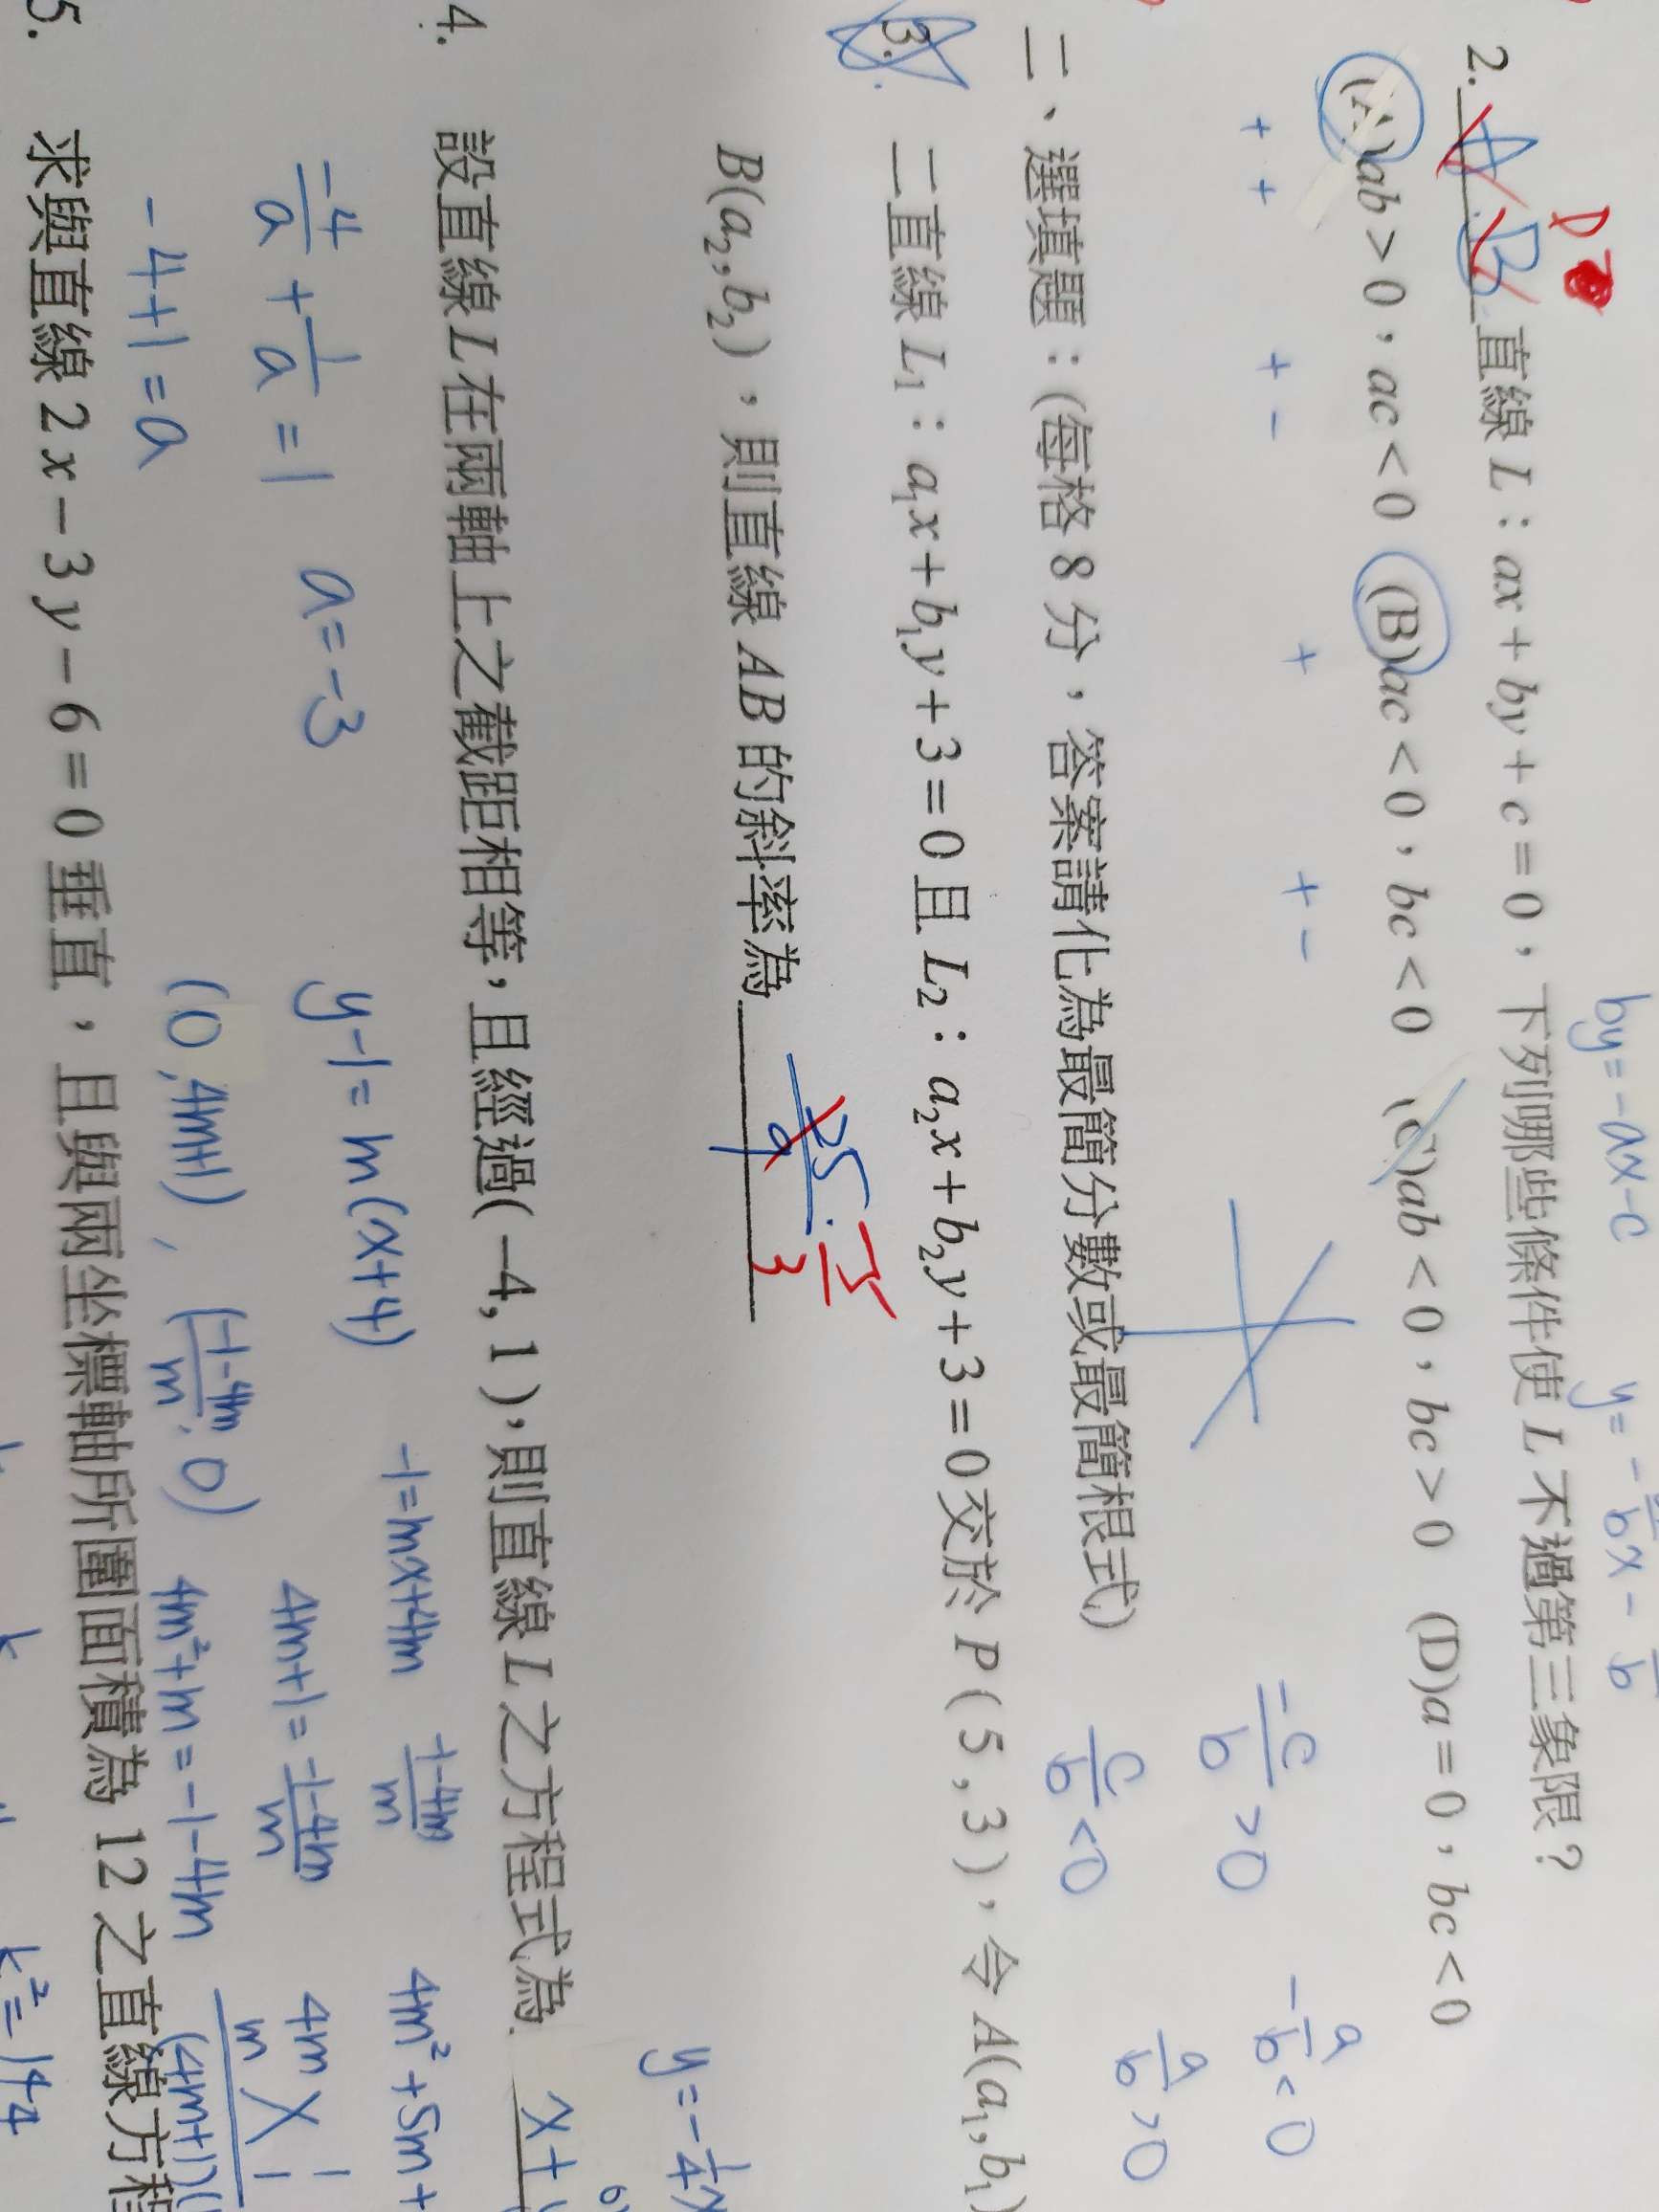 by=-ax-c
D
2. 直線 L：ax+by+c=0，下列哪些條件使 L 不過第三象限？
(A)ab>0，ac<0 (B)ac<0，bc<0 (C)ab<0，bc>0 (D)a=0，bc<0
+ + + - + + -
-c/b >0 -a/b <0
c/b <0 a/b >0
二、選填題：(每格 8 分，答案請化為最簡分數或最簡根式)
3. 二直線 L₁：a₁x+b₁y+3=0 且 L₂：a₂x+b₂y+3=0 交於 P(5,3)，令 A(a₁,b₁)
B(a₂,b₂)，則直線 AB 的斜率為
4. 設直線 L 在兩軸上之截距相等，且經過(-4,1)，則直線 L 之方程式為
-4/a + 1/a = 1 a=-3
-4+1=a
y-1=m(x+4) -1=mx+4m -1-4m/m 4m²+5m+
4m+1= -1-4m/m
(0,4m+1), (-1-4m/m, 0) 4m²+m=-1-4m
4m 1
m 1
5. 求與直線 2x-3y-6=0 垂直，且與兩坐標軸所圍面積為 12 之直線方程
k²=144